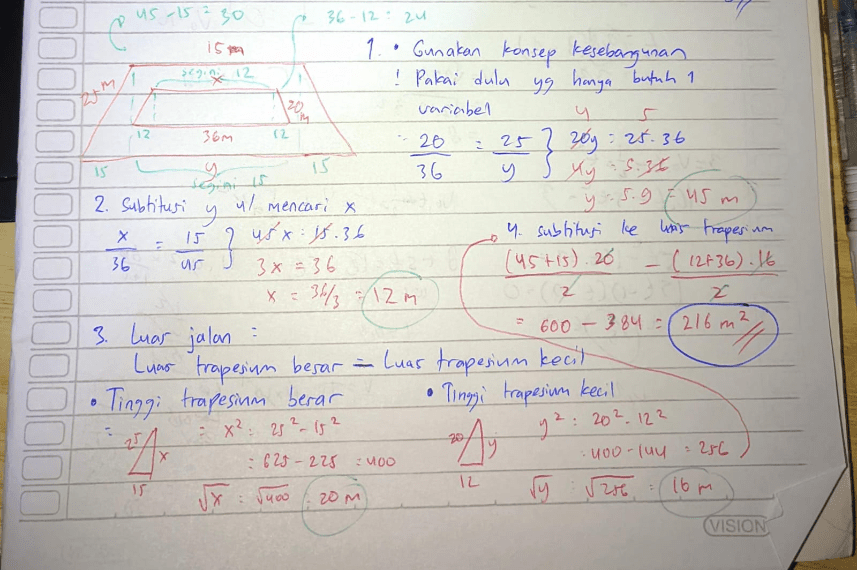 45 - 15 = 30
36 - 12 = 24
15 m
segini 12
x
25 m
20 m
12 36m 12
15 y 15
segini 15
1. • Gunakan konsep kesebangunan
! Pakai dulu yg hanya butuh 1
variabel
20/36 = 25/y } 20y = 25.36
4 5
4y = 5.36
y = 5.9 = 45 m
2. Subtitusi y u/ mencari x
x/36 = 15/45 } 45x = 15.36
3x = 36
x = 36/3 = 12 m
4. subtitusi ke luas trapesium
(45+15).20/2 - (12+36).16/2
= 600 - 384 = 216 m²
3. Luas jalan =
Luas trapesium besar - Luas trapesium kecil
• Tinggi trapesium besar
= 25 x 15
= x² = 25² - 15²
= 625 - 225 = 400
√x = √400 = 20 m
• Tinggi trapesium kecil
20 y 12
y² = 20² - 12²
= 400 - 144 = 256
√y = √256 = 16 m
VISION